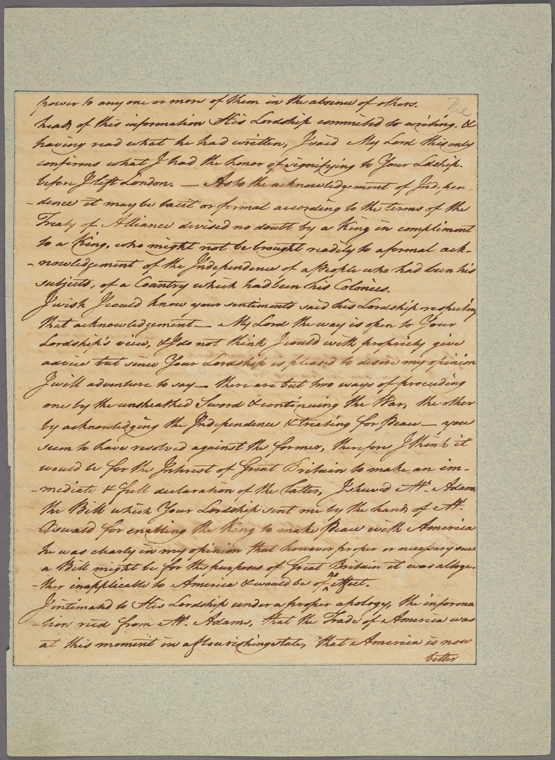 power to any one or more of them in the absence of others.
heads of this information His Lordship committed to writing. &
having read what he had written, I said My Lord this only
confirms what I had the honor of signifying to Your Lordship
before I left London. — As to the acknowledgement of Indepen-
-dence it may be tacit or formal according to the terms of the
Treaty of Alliance devised no doubt by a King in compliment
to a King, who might not be brought readily to a formal ack-
-nowledgement of the Independence of a People who had been his
subjects, of a Country which had been his Colonies.
I wish I could know your sentiments said his Lordship respecting
that acknowledgement — My Lord the way is open to Your
Lordship's view, & I do not think I could with propriety give
advice but since Your Lordship is pleased to desire my opinion
I will adventure to say — there are but two ways of proceeding
one by the unsheathed Sword & continuing the War, the other
by acknowledging the Independence & treating for Peace — you
seem to have resolved against the former, therefore I think it
would be for the Interest of Great Britain to make an im-
-mediate & full declaration of the latter, I shewed Mr. Adams
the Bill which Your Lordship sent me by the hands of Mr.
Oswald for enabling the King to make Peace with America
he was clearly in my opinion that however proper or necessary such
a Bill might be for the purposes of Great Britain it was altoge-
-ther inapplicable to America & would be of no effect.
I intimated to His Lordship under a proper apology, the informa
-tion recd from Mr. Adams, that the Trade of America was
at this moment in a flourishing state, that America is now
better